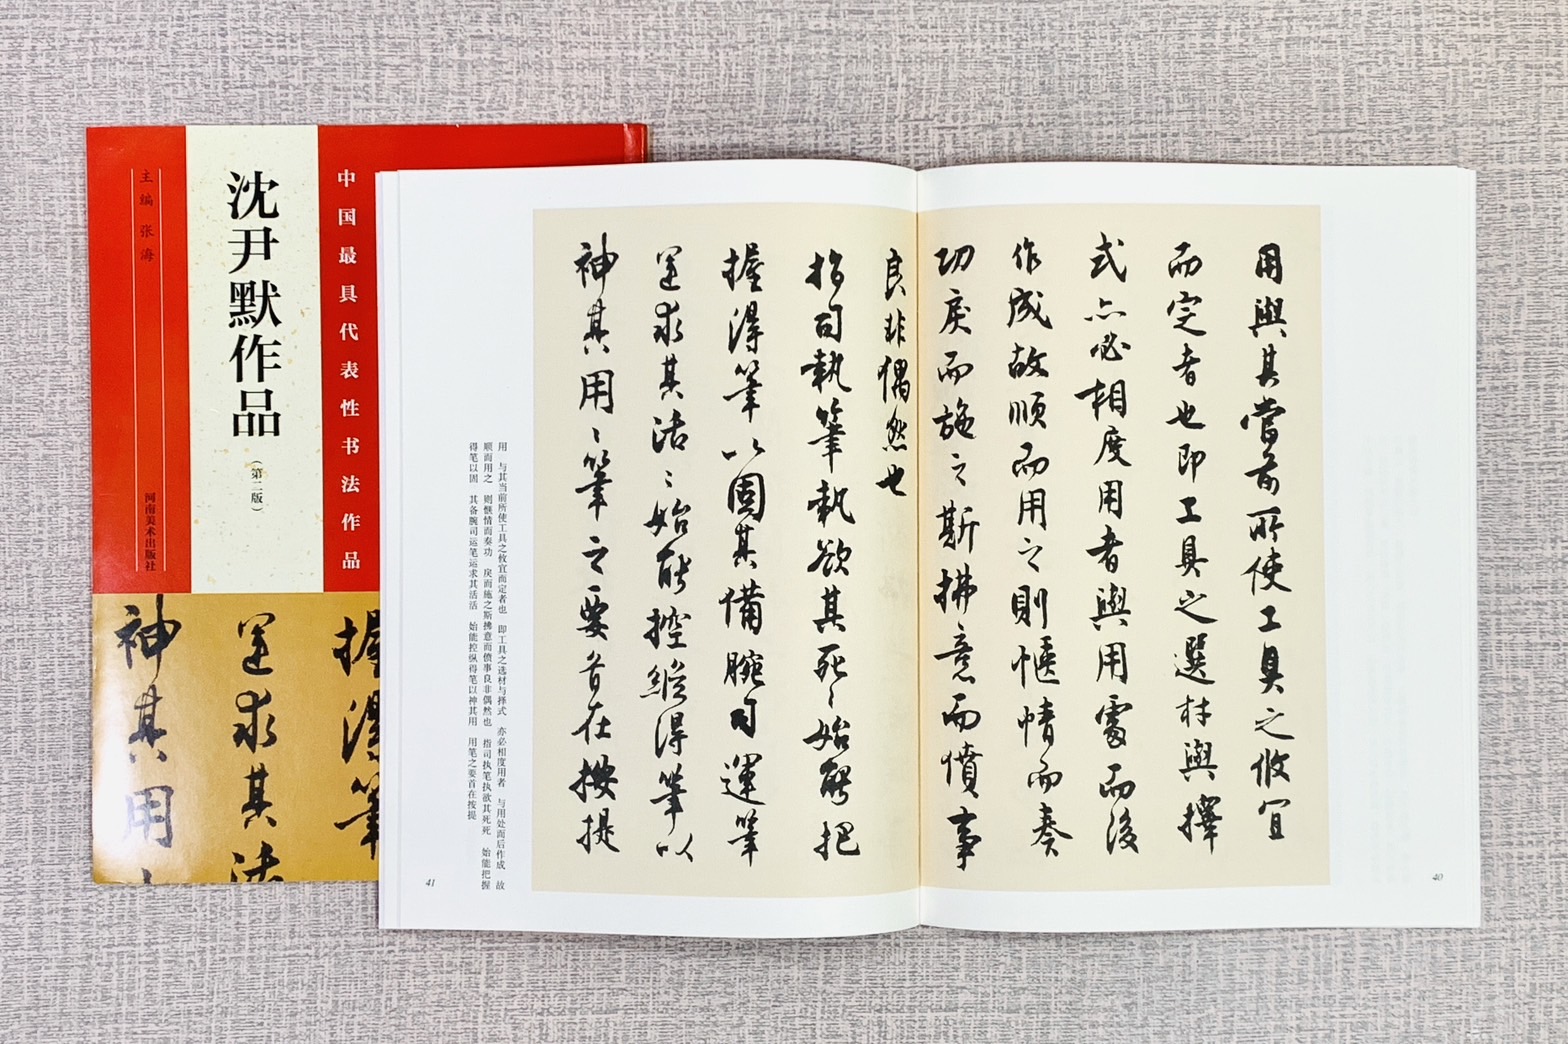 主编 张海
沈尹默作品
（第二版）
中国最具代表性书法作品
河南美术出版社
神其用
運求其活
握得筆
用與其當前所使工具之攸宜
而定者也即工具之選材與擇
式亦必相度用者與用處而後
作成故順而用之則愜情而奏
切戾而施之斯拂意而僨事
良非偶然也
指司執筆執欲其死〻始能把
握得筆以固其備腕司運筆
運求其活〻始能控縱得筆以
神其用〻筆之要首在按提
用 与其当前所使工具之攸宜而定者也 即工具之选材与择式 亦必相度用者 与用处而后作成 故
顺而用之 则惬情而奏功 戾而施之斯拂意而偾事良非偶然也 指司执笔执欲其死死 始能把握
得笔以固 其备腕司运笔运求其活活 始能控纵得笔以神其用 用笔之要首在按提
41
40